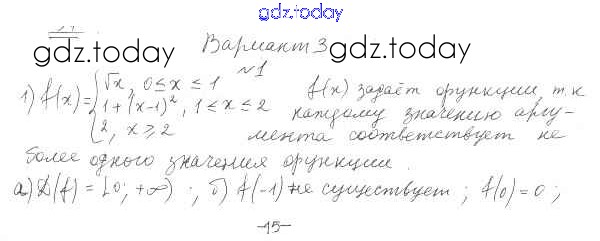 gdz.today
gdz.today
gdz.today
Вариант 3
№1
1) f(x) = { √x, 0 ≤ x ≤ 1
1 + (x-1)², 1 ≤ x ≤ 2
2, x ≥ 2
f(x) задаёт функции, т.к
каждому значению аргу-
мента соответствует не
более одного значения функции.
а) D(f) = [0; +∞) ; б) f(-1) не существует ; f(0) = 0 ;
-15-